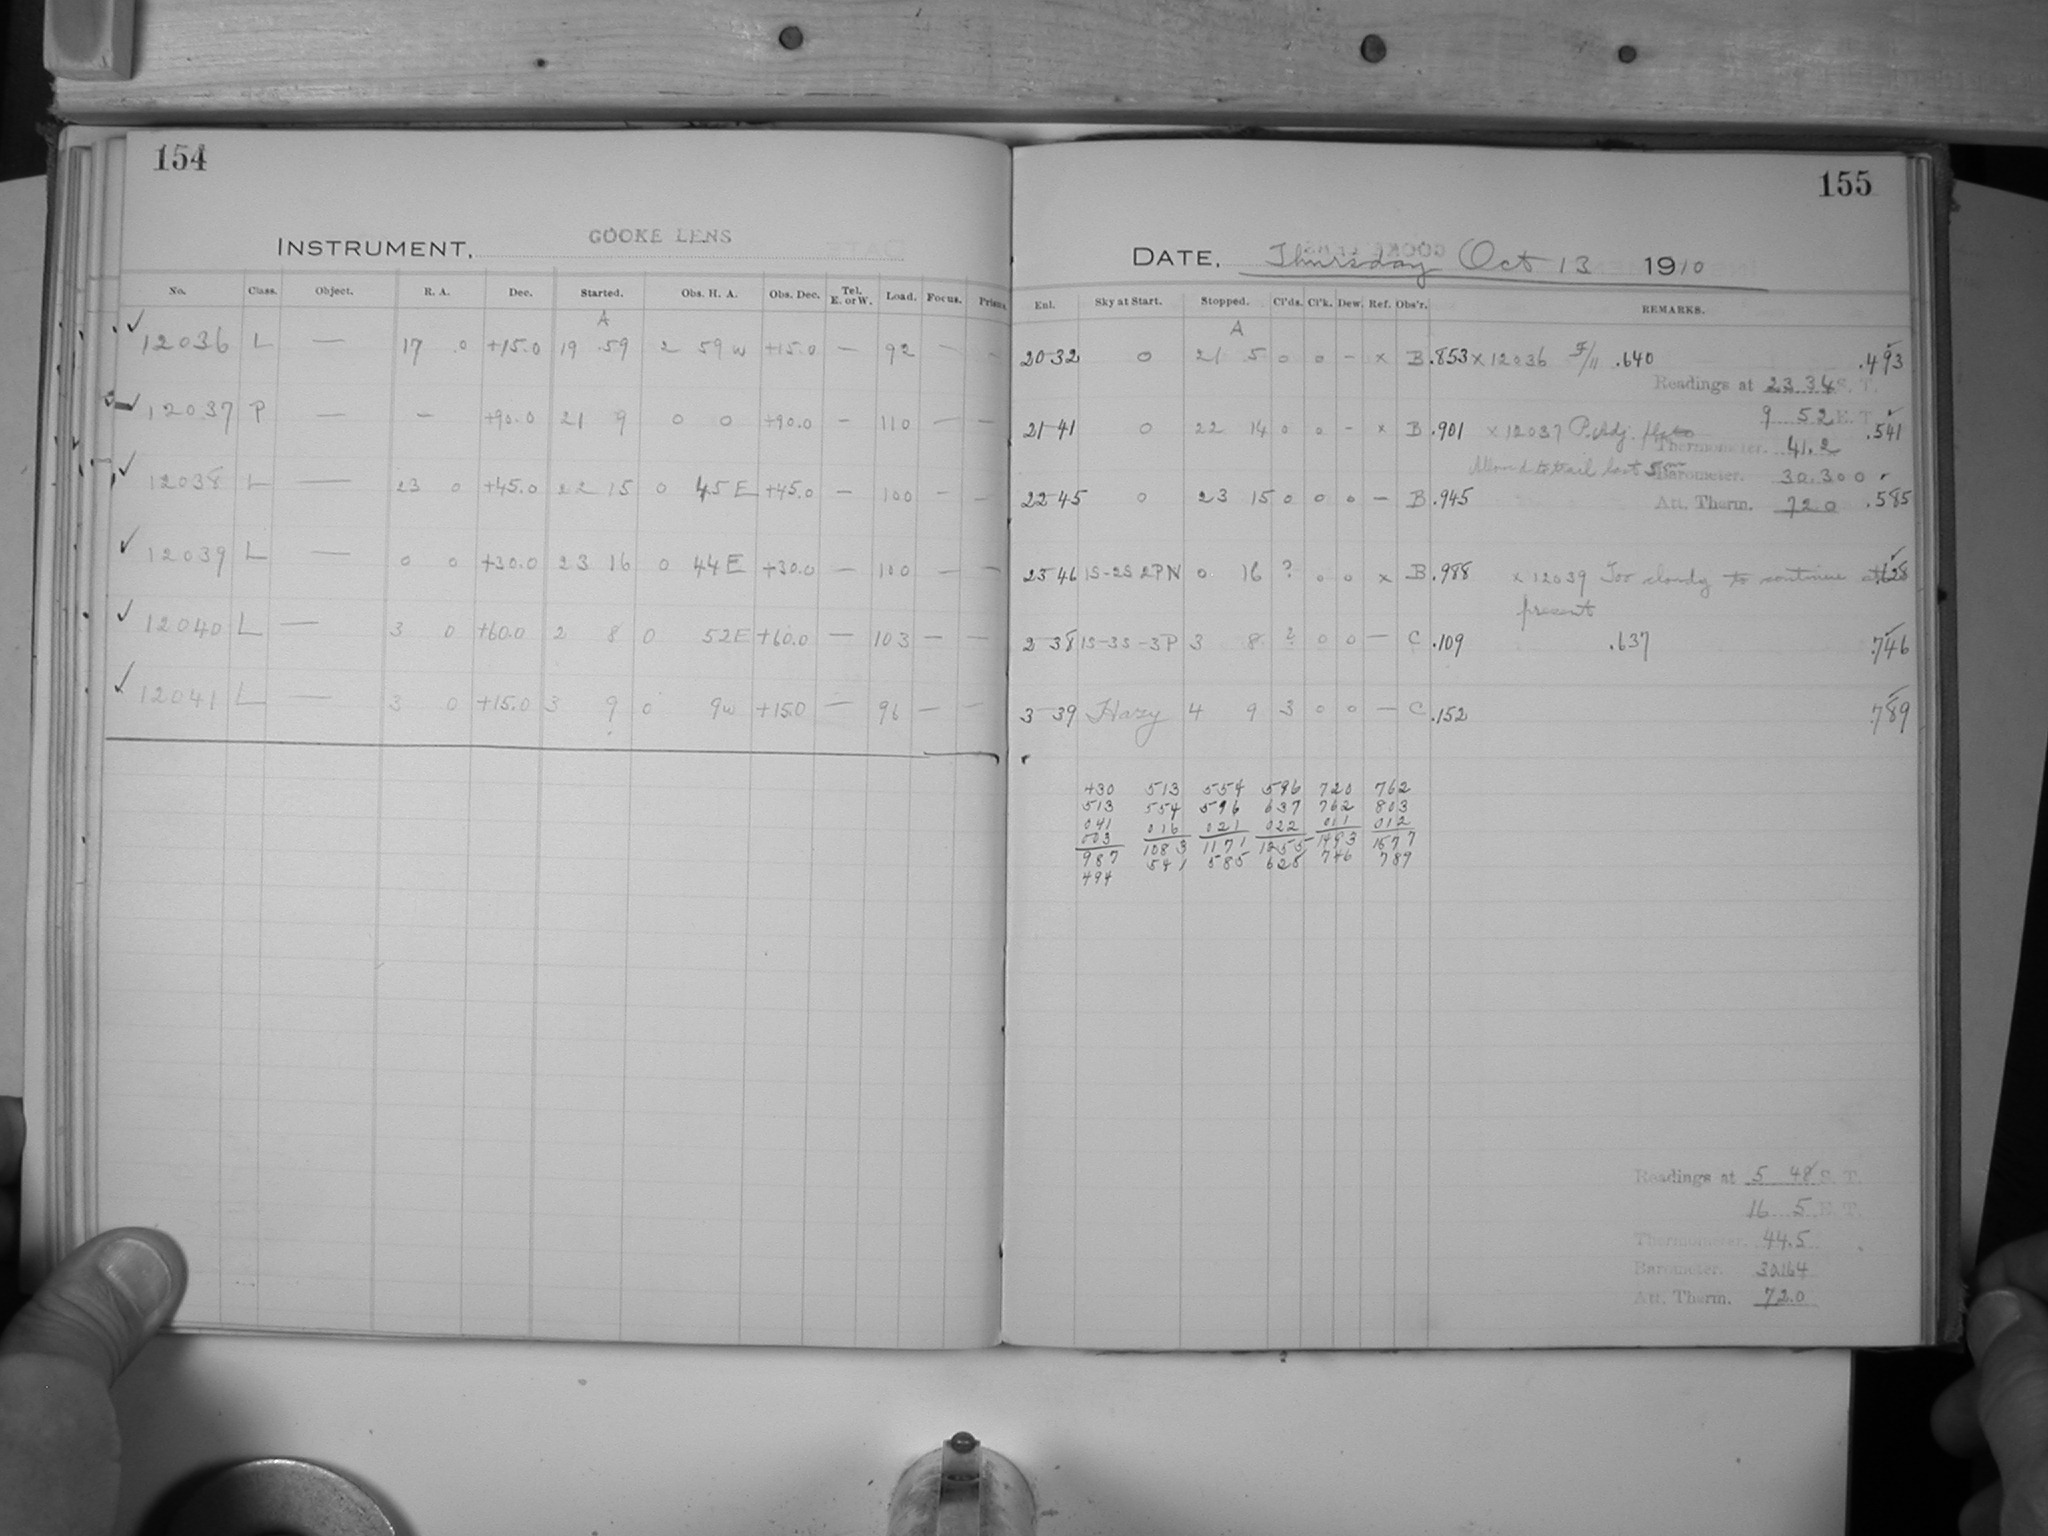 154
INSTRUMENT, COOKE LENS
No. Class. Object. R. A. Dec. Started. Obs. H. A. Obs. Dec. Tel. E. or W. Load. Focus. Prism.
A
✓ 12036 L — 17 0 +15.0 19 59 2 59 W +15.0 — 92 — —
✓ 12037 P — — +90.0 21 9 0 0 +90.0 — 110 — —
✓ 12038 L — 23 0 +45.0 22 15 0 45 E +45.0 — 100 — —
✓ 12039 L — 0 0 +30.0 23 16 0 44 E +30.0 — 100 — —
✓ 12040 L — 3 0 +60.0 2 8 0 52 E +60.0 — 103 — —
✓ 12041 L — 3 0 +15.0 3 9 0 9 W +15.0 — 96 — —
155
DATE, Thursday Oct 13 1910
Exl. Sky at Start. Stopped. Cl'ds. Cl'k. Dew. Ref. Obs'r. REMARKS.
A
20 32 0 21 5 0 0 — x B .853 x 12036 F/11 .640 .493
Readings at 23 34 S. T.
9 52 E. T.
21 41 0 22 14 0 0 — x B .901 x 12037 P. Adj. plate .541
Thermometer. 41.2
Allowed to trail last 5m
Barometer. 30.300
22 45 0 23 15 0 0 0 — B .945 .585
Att. Therm. 72.0
23 46 1S-2S 2PN 0 16 ? 0 0 x B .988 x 12039 Too cloudy to continue at .628
present
2 38 1S-3S-3P 3 8 ? 0 0 — C .109 .637 .746
3 39 Hazy 4 9 3 0 0 — C .152 .789
430 513 554 596 720 762
513 554 596 637 762 803
041 016 021 022 011 012
003
987 1083 1171 1255 1493 1577
494 541 585 628 746 789
Readings at 5 48 S. T.
16 5 E. T.
Thermometer. 44.5
Barometer. 30.164
Att. Therm. 72.0